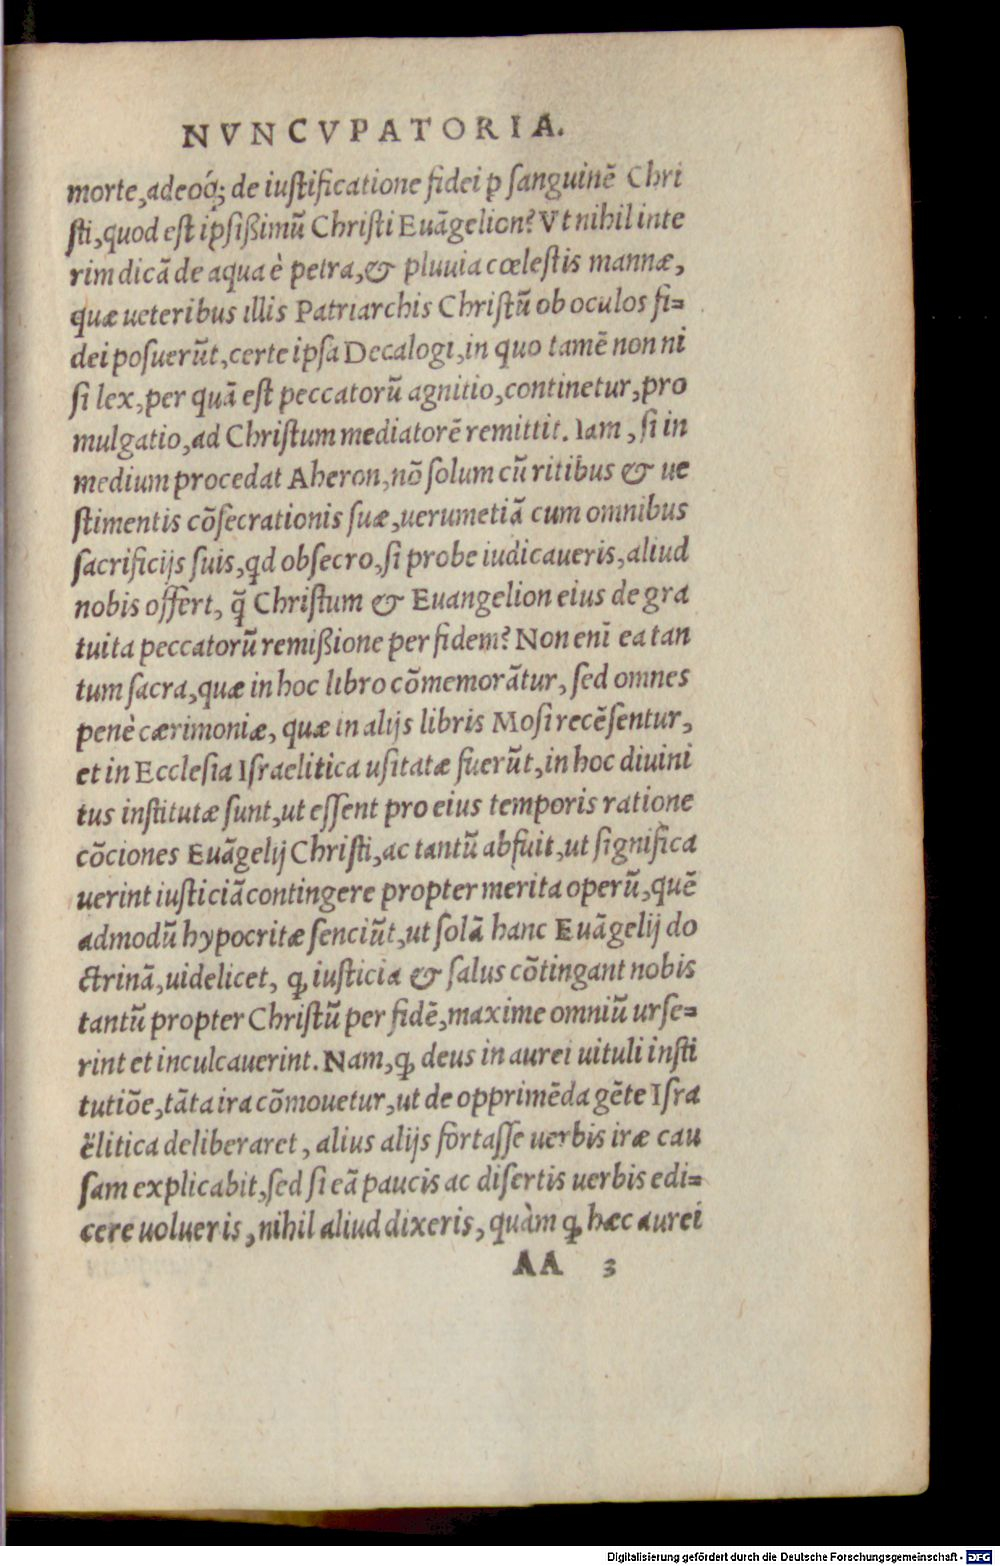 NVNCVPATORIA.
morte, adeoq́; de iustificatione fidei ꝑ sanguinē Chri
sti, quod est ipsißimũ Christi Euãgelion? Vt nihil inte
rim dicã de aqua è petra, & pluuia cœlestis mannæ,
quæ ueteribus illis Patriarchis Christũ ob oculos fi=
dei posuerũt, certe ipsa Decalogi, in quo tamē non ni
si lex, per quã est peccatorũ agnitio, continetur, pro
mulgatio, ad Christum mediatorē remittit. Iam, si in
medium procedat Aheron, nõ solum cũ ritibus & ue
stimentis cõsecrationis suæ, uerumetiã cum omnibus
sacrificijs suis, qd obsecro, si probe iudicaueris, aliud
nobis offert, q̃ Christum & Euangelion eius de gra
tuita peccatorũ remißione per fidem? Non enī ea tan
tum sacra, quæ in hoc libro cõmemorãtur, sed omnes
penè cærimoniæ, quæ in alijs libris Mosi recēsentur,
et in Ecclesia Israelitica usitatæ fuerũt, in hoc diuini
tus institutæ sunt, ut essent pro eius temporis ratione
cõciones Euãgelij Christi, ac tantũ abfuit, ut significa
uerint iusticiã contingere propter merita operũ, quē
admodũ hypocritæ senciũt, ut solã hanc Euãgelij do
ctrinã, uidelicet, ꝙ iusticia & salus cõtingant nobis
tantũ propter Christũ per fidē, maxime omniũ urse=
rint et inculcauerint. Nam, ꝙ deus in aurei uituli insti
tutiõe, tãta ira cõmouetur, ut de opprimēda gēte Isra
ëlitica deliberaret, alius alijs fortasse uerbis iræ cau
sam explicabit, sed si eã paucis ac disertis uerbis edi=
cere uolueris, nihil aliud dixeris, quàm ꝙ hæc aurei
AA 3
Digitalisierung gefördert durch die Deutsche Forschungsgemeinschaft - DFG